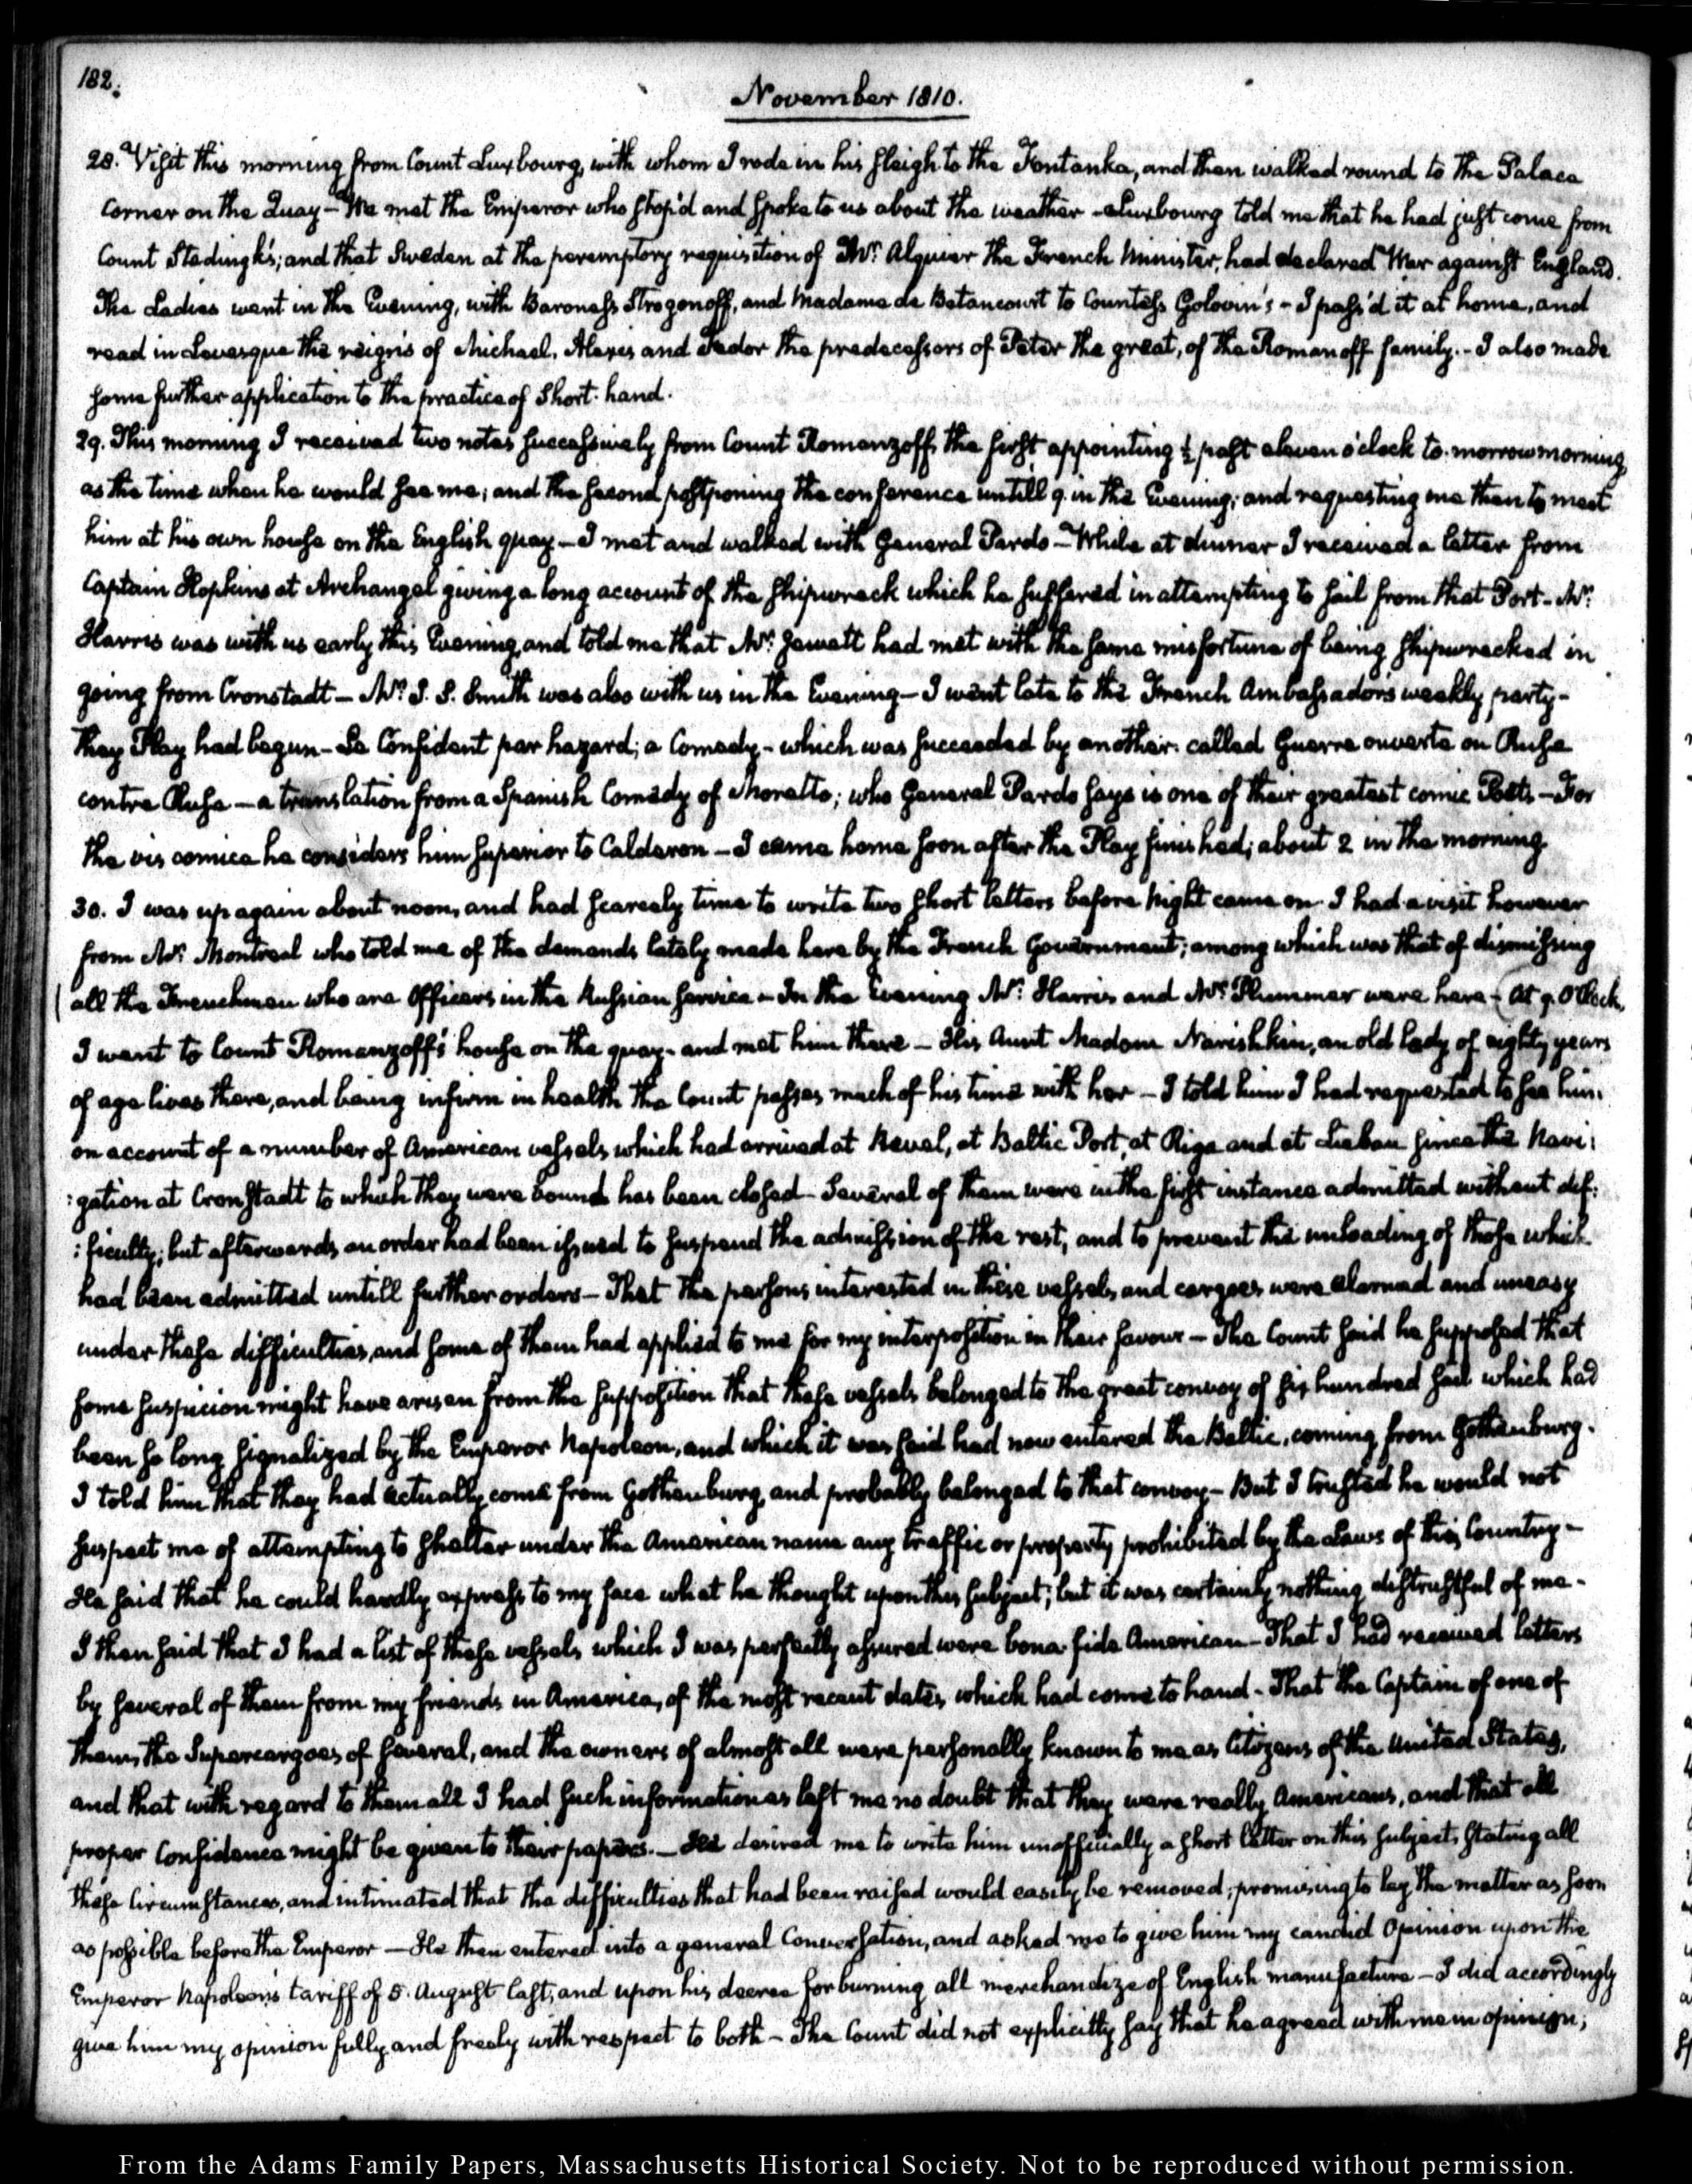 182.
November 1810.
28. Visit this morning from Count Luxbourg, with whom I rode in his sleigh to the Fontanka, and then walked round to the Palace
corner on the Quay — We met the Emperor who stop'd and spoke to us about the weather — Luxbourg told me that he had just come from
Count Stedingk's; and that Sweden at the peremptory requisition of Mr. Alquier the French Minister, had declared War against England.
The Ladies went in the Evening, with Baroness Strogonoff, and Madame de Betancourt to Countess Golovin's — I pass'd it at home, and
read in Levesque the reigns of Michael, Alexis and Fedor the predecessors of Peter the great, of the Romanoff family. — I also made
some further application to the practice of Short-hand.
29. This morning I received two notes successively from Count Romanzoff, the first appointing ½ past eleven o'clock to-morrow morning,
as the time when he would see me; and the second postponing the conference untill 9. in the Evening; and requesting me then to meet
him at his own house on the English quay — I met and walked with General Pardo — While at dinner I received a letter from
Captain Hopkins at Archangel giving a long account of the shipwreck which he suffered in attempting to sail from that Port — Mr.
Harris was with us early this Evening, and told me that Mr. Jewett had met with the same misfortune of being shipwrecked in
going from Cronstadt — Mr. J. S. Smith was also with us in the Evening — I went late to the French Ambassador's weekly party —
They Play had begun — Le Confident par hazard; a Comedy — which was succeeded by another. called Guerre ouverte ou Ruse
contre Ruse — a translation from a Spanish Comedy of Moretto; who General Pardo says is one of their greatest comic Poets — For
the vis comica he considers him superior to Calderon — I came home soon after the Play finished; about 2 in the morning.
30. I was up again about noon, and had scarcely time to write two short letters before Night came on. I had a visit however
from Mr. Montreal who told me of the demands lately made here by the French Government; among which was that of dismissing
all the Frenchmen who are Officers in the Russian service — In the Evening Mr. Harris and Mr. Plummer were here — (At 9. O'Clock,
I went to Count Romanzoff's house on the quay — and met him there — His Aunt Madam Narishkin, an old lady of eighty years
of age lives there, and being infirm in health the Count passes much of his time with her — I told him I had requested to see him,
on account of a number of American vessels which had arrived at Reval, at Baltic Port, at Riga and at Liebau since the Navi:
:gation at Cronstadt to which they were bound has been closed — Several of them were in the first instance admitted without dif:
:ficulty; but afterwards an order had been issued to suspend the admission of the rest, and to prevent the unloading of those which
had been admitted untill further orders — That the persons interested in these vessels and cargoes were alarmed and uneasy
under these difficulties, and some of them had applied to me for my interposition in their favour — The Count said he supposed that
some suspicion might have arisen from the supposition that these vessels belonged to the great convoy of six hundred sail which had
been so long signalized by the Emperor Napoleon, and which it was said had now entered the Baltic, coming from Gothenburg.
I told him that they had actually come from Gothenburg, and probably belonged to that convoy — But I trusted he would not
suspect me of attempting to shelter under the American name any traffic or property prohibited by the Laws of this Country —
He said that he could hardly express to my face what he thought upon this subject; but it was certainly nothing distrustful of me —
I then said that I had a list of these vessels which I was perfectly assured were bona fide American — That I had received letters
by several of them from my friends in America, of the most recent dates, which had come to hand — That the Captain of one of
them, the Supercargoes of several, and the owners of almost all were personally known to me as Citizens of the United States,
and that with regard to them all I had such information as left me no doubt that they were really Americans, and that all
proper Confidence might be given to their papers. — He desired me to write him unofficially a short letter on this subject, stating all
these Circumstances, and intimated that the difficulties that had been raised would easily be removed; promising to lay the matter as soon
as possible before the Emperor — He then entered into a general Conversation, and asked me to give him my candid Opinion upon the
Emperor Napoleon's tariff of 5. August last, and upon his decree for burning all merchandize of English manufacture — I did accordingly
give him my opinion fully and freely with respect to both — The Count did not explicitly say that he agreed with me in opinion;
From the Adams Family Papers, Massachusetts Historical Society. Not to be reproduced without permission.